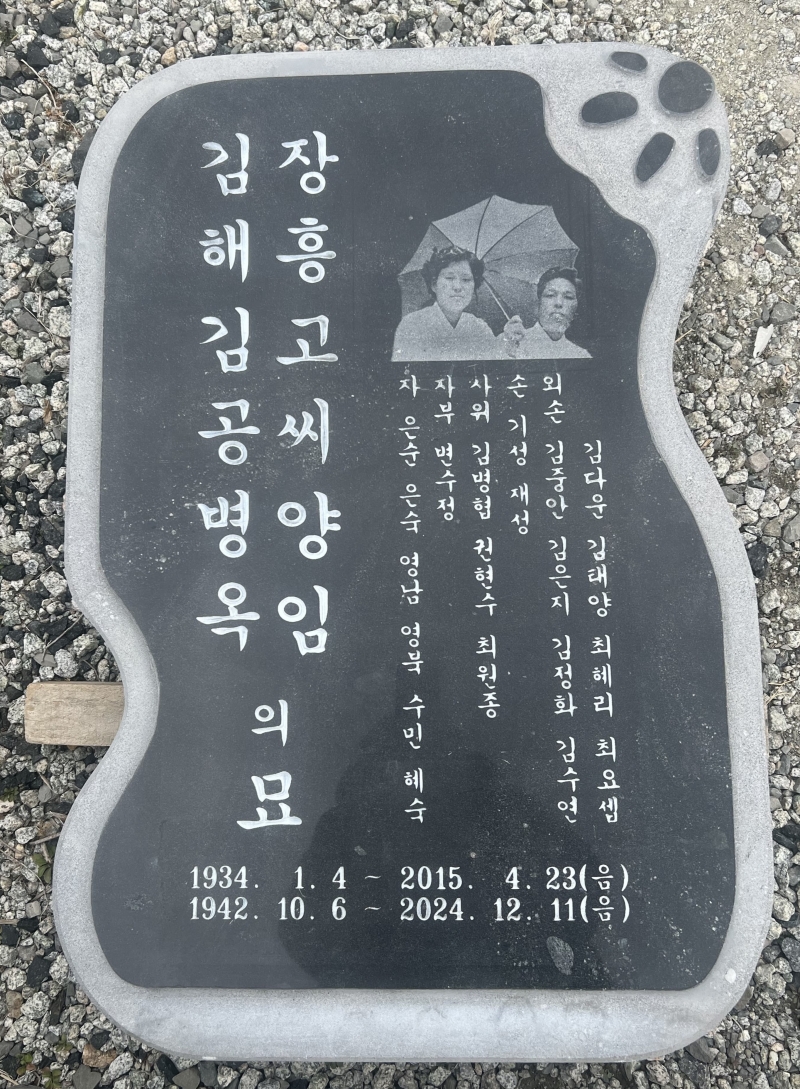 김해김공병옥
장흥고씨양임
의
묘
자 은순 은숙 영남 수민 혜숙
자부 변수정
사위 김병협 권현수 최원종
손 기성 재성
외손 김중안 김은지 김정화 김수연
김다운 김태양 최혜리 최요셉
1934. 1. 4 ~ 2015. 4. 23(음)
1942. 10. 6 ~ 2024. 12. 11(음)